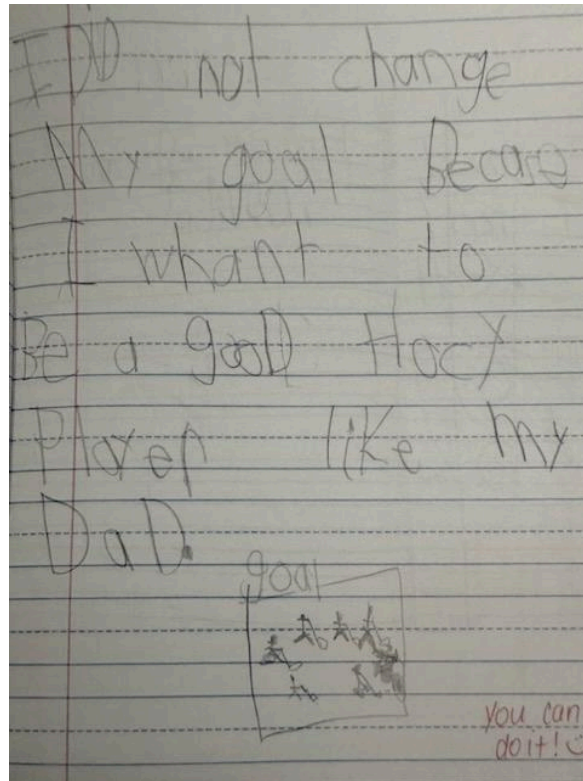 I DiD not change
My goal Becase
I whant to
Be a gooD Hocy
Player like my
DaD.
goal
you can
do it!